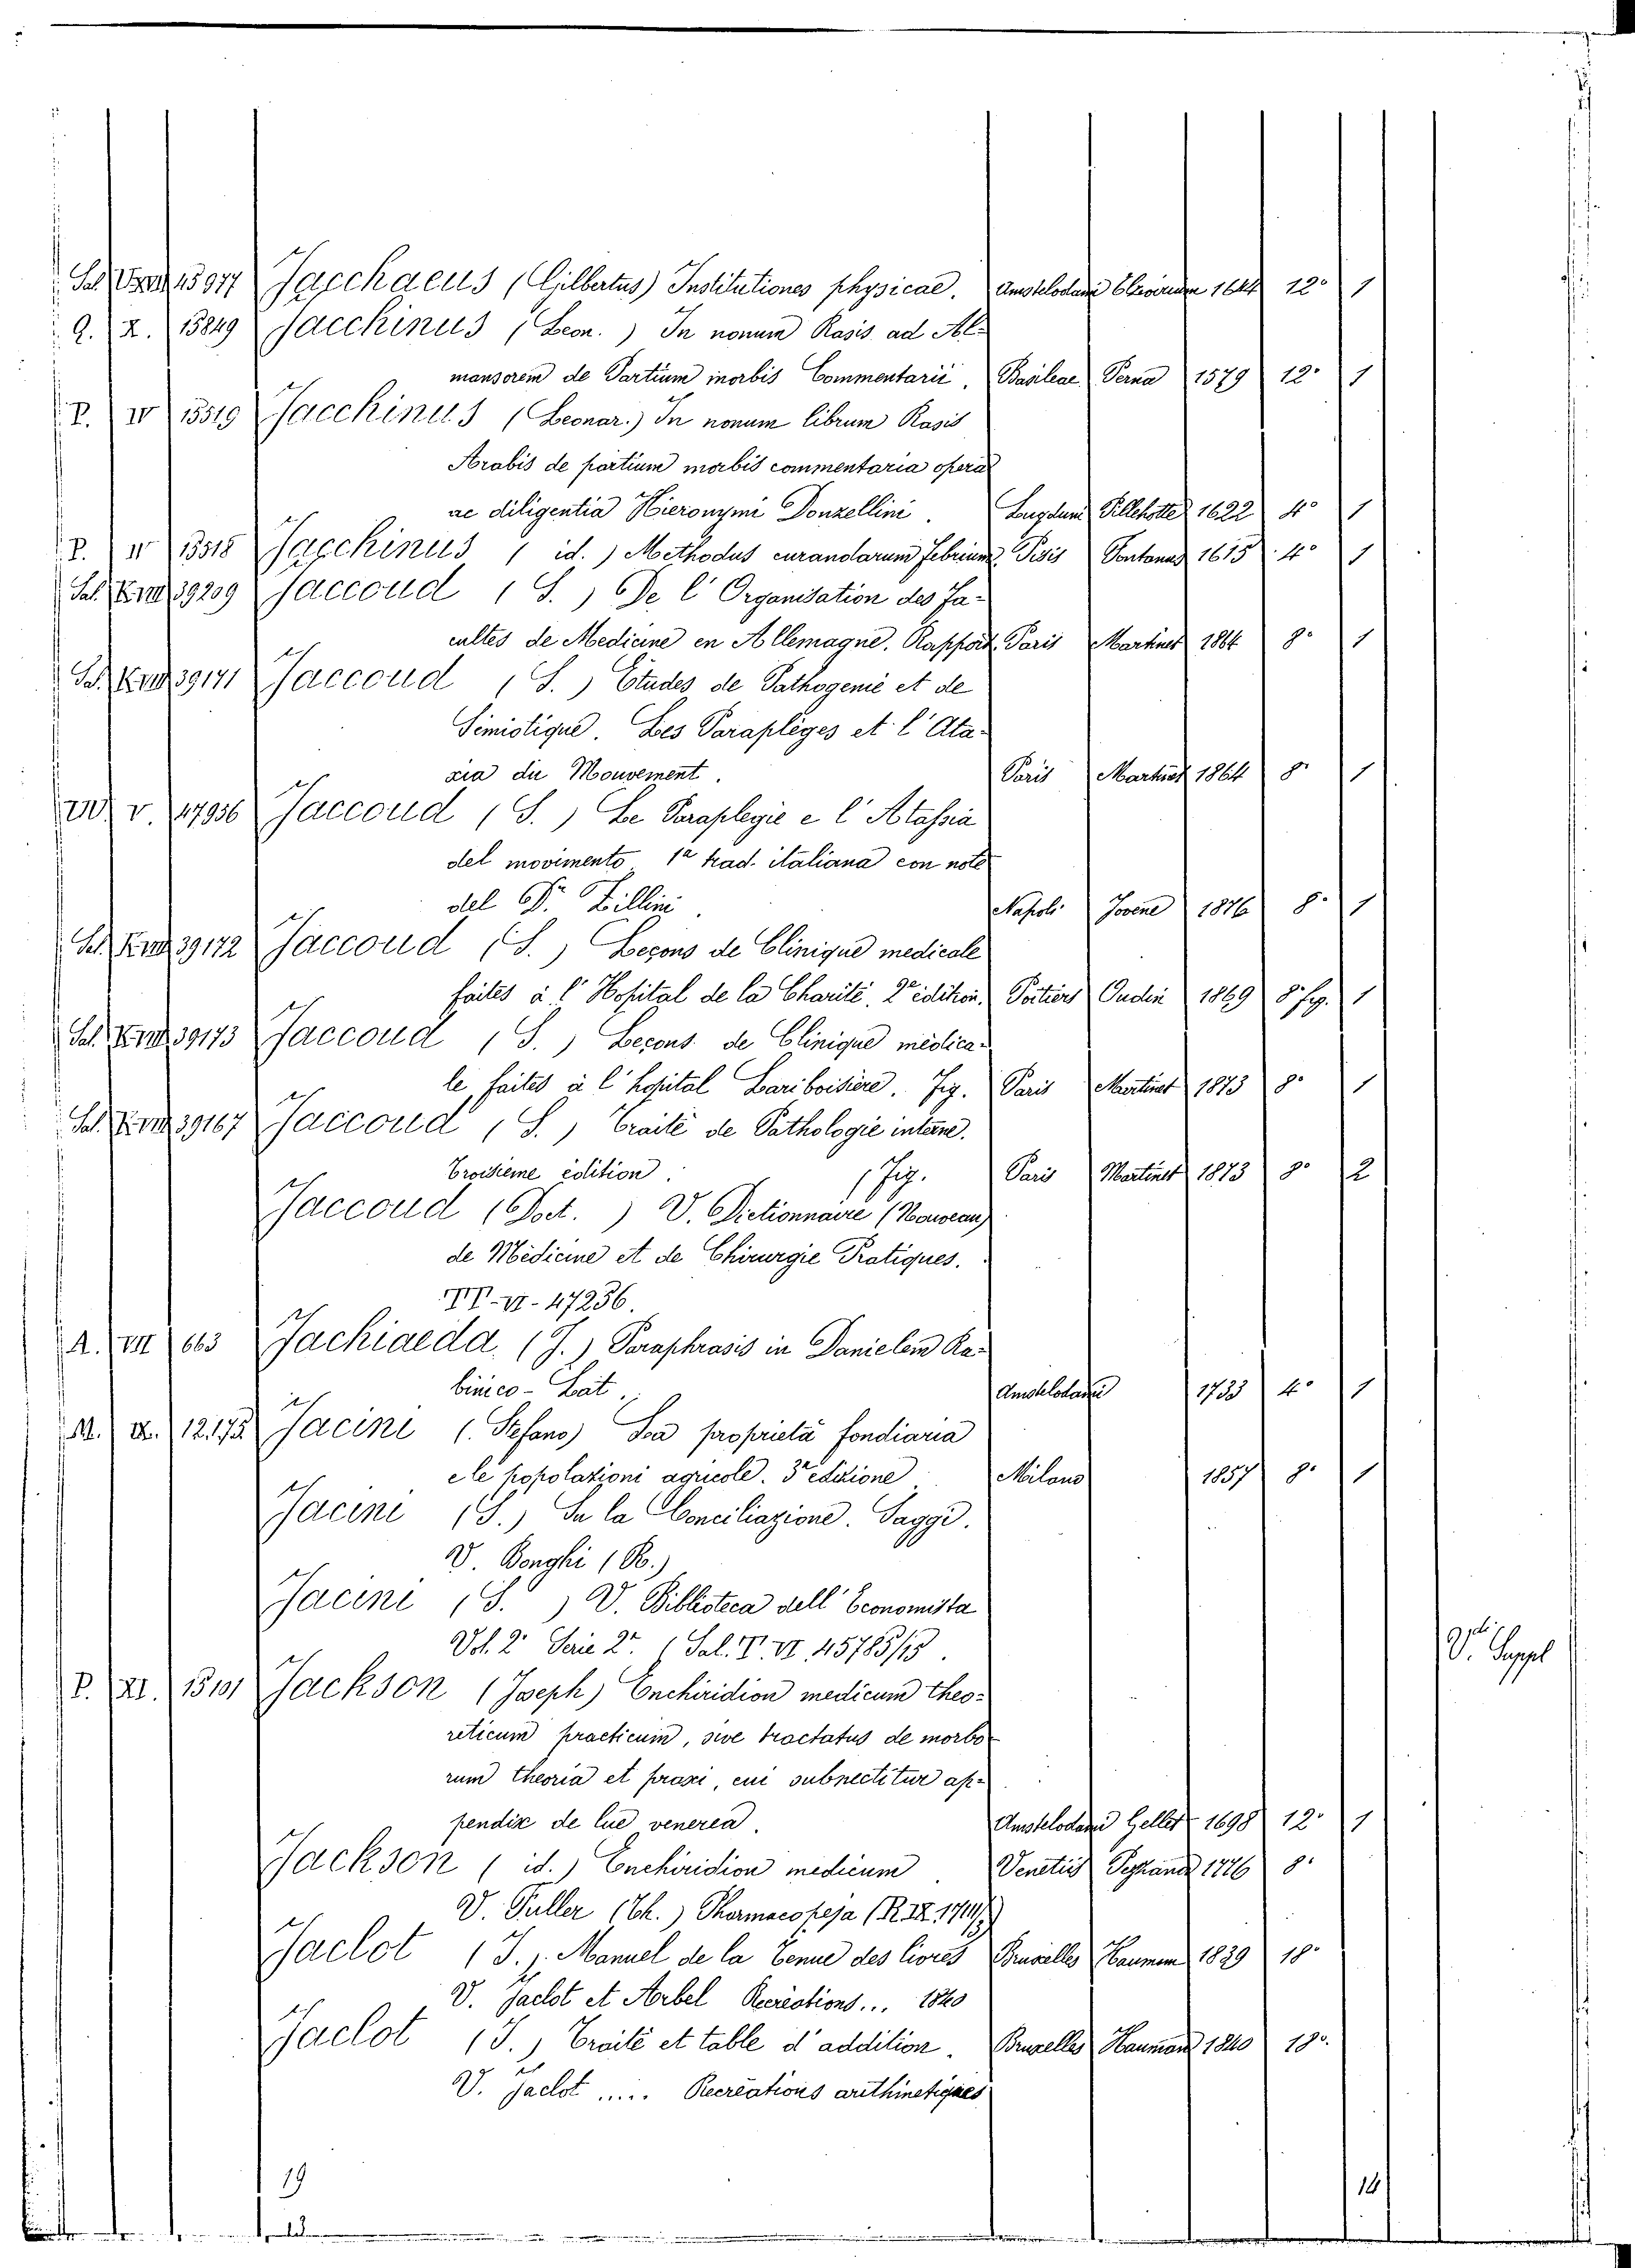 15977 Jacchaeus (Gilbertus) Institutiones physicae. Amstelodami 1644 12° 1
Q. X. 15849 Jacchinus (Leon.) In nonum Rasis ad Al-
mansorem de Partium morbis Commentarii, Basileae Perna 1579 12° 1
P. IV 15519 Jacchinus (Leonar.) In nonum librum Rasis
Arabis de partium morbis commentaria opera
ac diligentia Hieronymi Donzellini. Lugduni Pillehotte 1622 4° 1
P. IV 15518 Jacchinus (id.) Methodus curandarum febrium Pisis Fontanus 1615 4° 1
Sal. 39209 Jaccoud (S.) De l'Organisation des Fa-
cultes de Medicine en Allemagne. Rapport. Paris Martinet 1864 8° 1
39171 Jaccoud (S.) Études de Pathogenie et de
Simiotique. Les Parapléges et l'Ata-
xia du Mouvement. Paris Martinet 1864 8° 1
V. 47936 Jaccoud (S.) Le Paraplegie e l'Atassia
del movimento, 1ª trad. italiana con note
del Dr. Zillini. Napoli Jovene 1876 8° 1
39172 Jaccoud (S.) Leçons de Clinique medicale
faites à l'Hospital de la Charité. 2e édition. Poitiers Oudin 1869 8° fig. 1
39173 Jaccoud (S.) Leçons de Clinique médica-
le faites à l'hopital Lariboisière. Fig. Paris Martinet 1873 8° 1
39167 Jaccoud (S.) Traité de Pathologie interne.
Troisieme édition. (Fig. Paris Martinet 1873 8° 2
Jaccoud (Doct.) V. Dictionnaire (Nouveau)
de Médicine et de Chirurgie Pratiques.
TT-VI-47236.
A. VII 663 Jachiaeda, (J.) Paraphrasis in Danielem Ra-
binico-Lat. Amstelodami 1733 4° 1
12175 Jacini (Stefano) La proprietà fondiaria
e le popolazioni agricole. 3ª edizione Milano 1857 8° 1
Jacini (S.) Su la Conciliazione. Saggi.
V. Bonghi (R.)
Jacini (S.) V. Biblioteca dell'Economista
Vol. 2° Serie 2ª (Sal. V. VI. 45785/15.
P. XI. 15101 Jackson (Joseph) Enchiridion medicum theo-
reticum practicum, sive tractatus de morbo-
rum theoria et praxi, cui subnectitur ap-
pendix de lue venerea. Amstelodami Geller 1698 12° 1
Jackson (id.) Enchiridion medicum Venetiis 1726 8°
V. Fuller (Th.) Pharmacopeja
Jaclot (J.) Manuel de la Tenue des livres Bruxelles Hauman 1839 18°
V. Jaclot et Arbel Recréations... 1840
Jaclot (J.) Traité et table d'addition. Bruxelles Hauman 1840 18°.
V. Jaclot ..... Recréations arithmetiques
V. Suppl
19
14